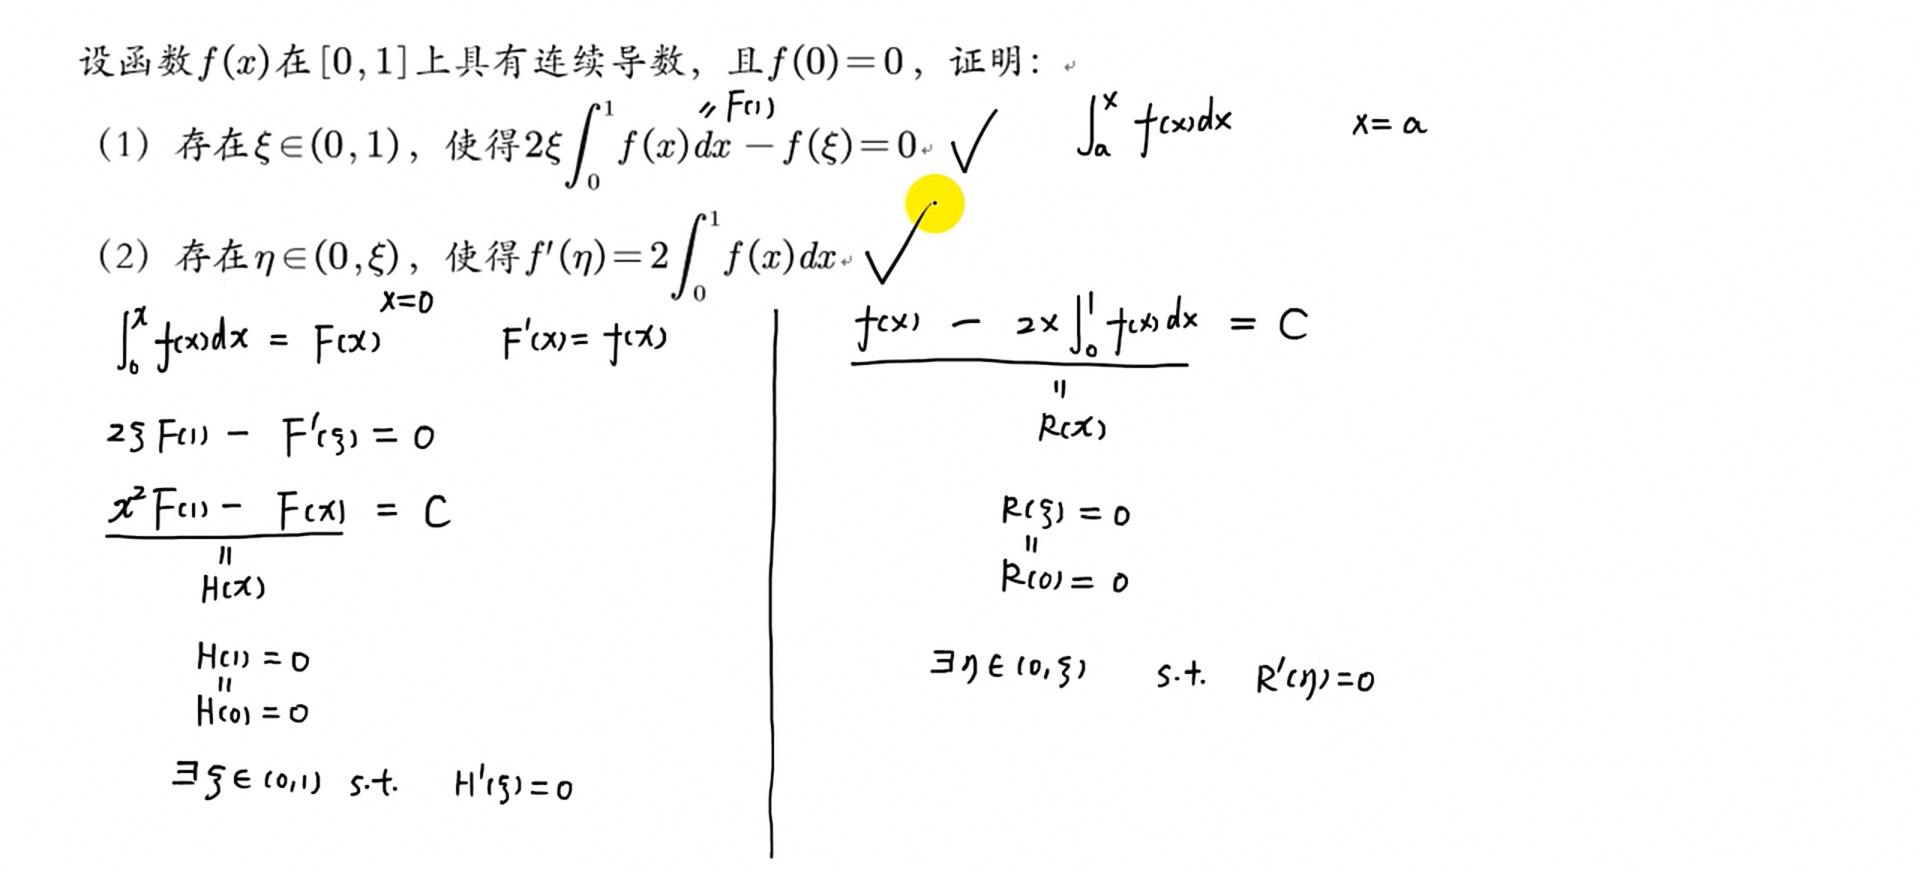 设函数f(x)在[0,1]上具有连续导数，且f(0)=0，证明：
〃 F(1)
(1) 存在ξ∈(0,1)，使得2ξ∫₀¹ f(x)dx − f(ξ)=0 ✓
∫ₐˣ f(x)dx x=a
(2) 存在η∈(0,ξ)，使得f′(η)=2∫₀¹ f(x)dx ✓
x=0
∫₀ˣ f(x)dx = F(x) F′(x)=f(x)
2ξF(1) − F′(ξ) = 0
x²F(1) − F(x) = C
〃
H(x)
H(1)=0
〃
H(0)=0
∃ξ∈(0,1) s.t. H′(ξ)=0
f(x) − 2x∫₀¹ f(x)dx = C
〃
R(x)
R(ξ)=0
〃
R(0)=0
∃η∈(0,ξ) s.t. R′(η)=0